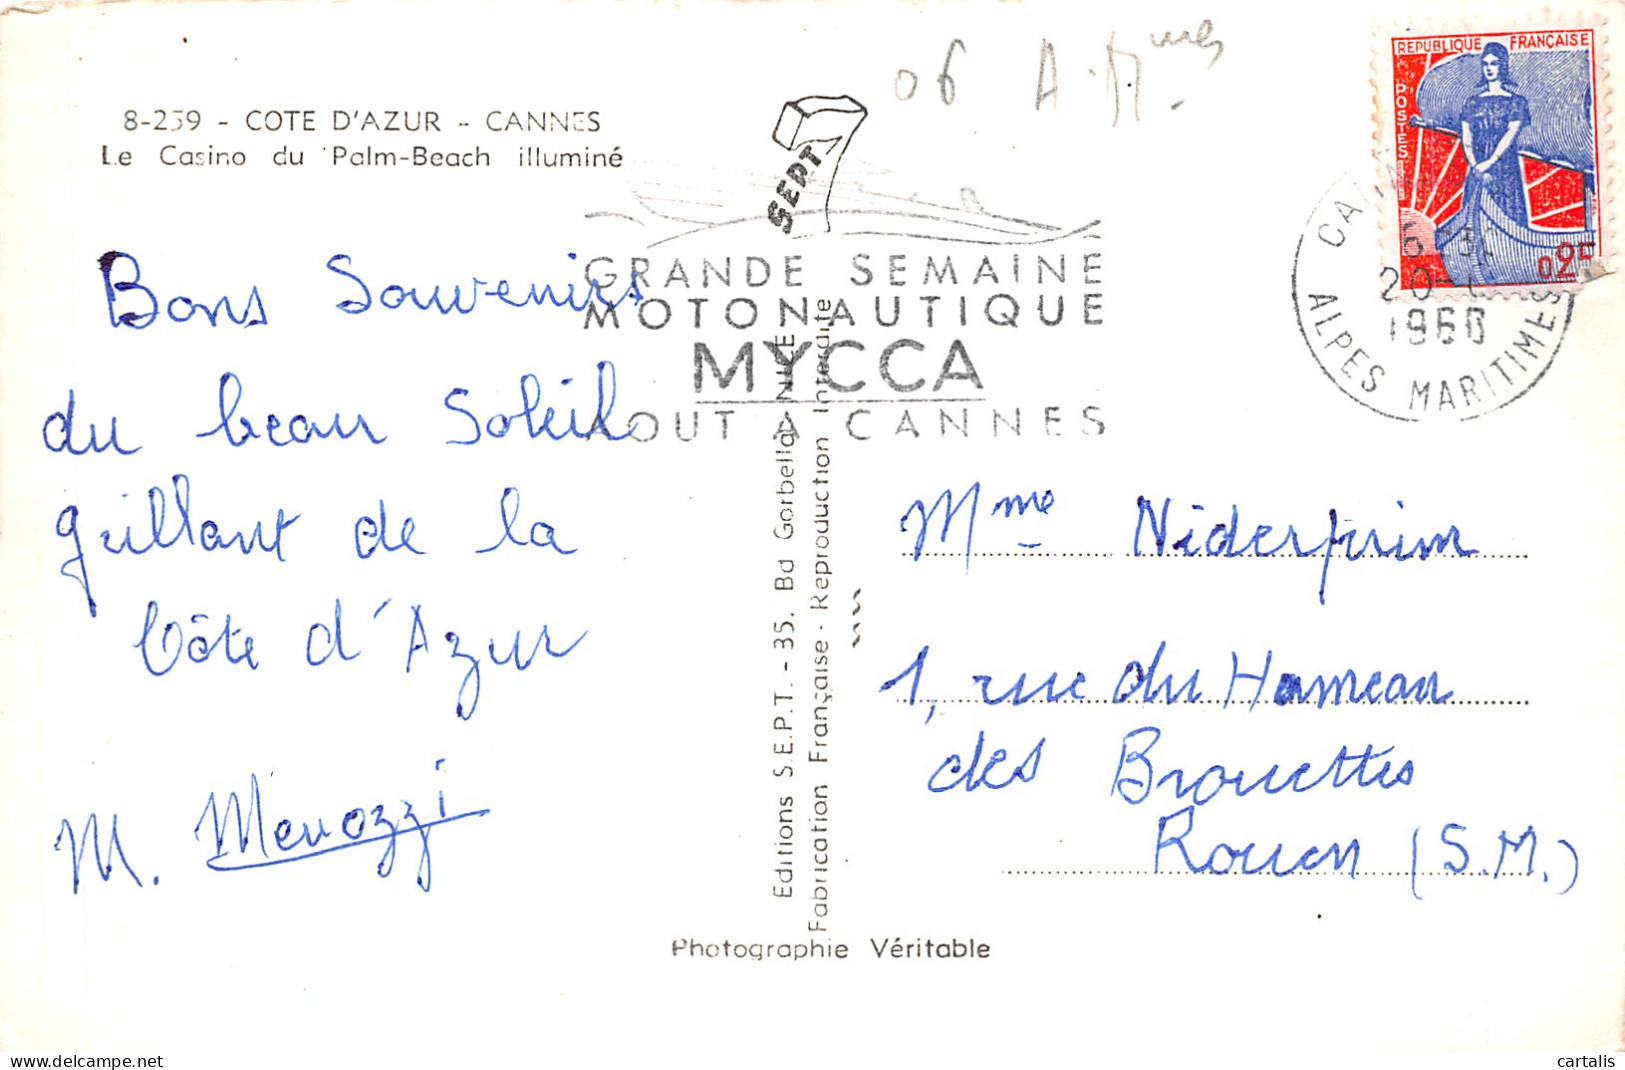 8-259 - COTE D'AZUR - CANNES
Le Casino du Palm-Beach illuminé
06 A.Mmes
REPUBLIQUE FRANÇAISE
POSTES
0,25
CANNES
20
1960
ALPES MARITIMES
SEPT
GRANDE SEMAINE
MOTONAUTIQUE
MYCCA
AOUT A CANNES
Bons Souvenirs
du beau Soleil
brillant de la
Côte d'Azur
M. Menozzi
Editions S.E.P.T. - 35, Bd Gorbella, NICE
Fabrication Française - Reproduction Interdite
Mme Niderprim
1, rue du Hameau
des Brouettes
Rouen (S.M.)
Photographie Véritable
cartalis
delcampe.net